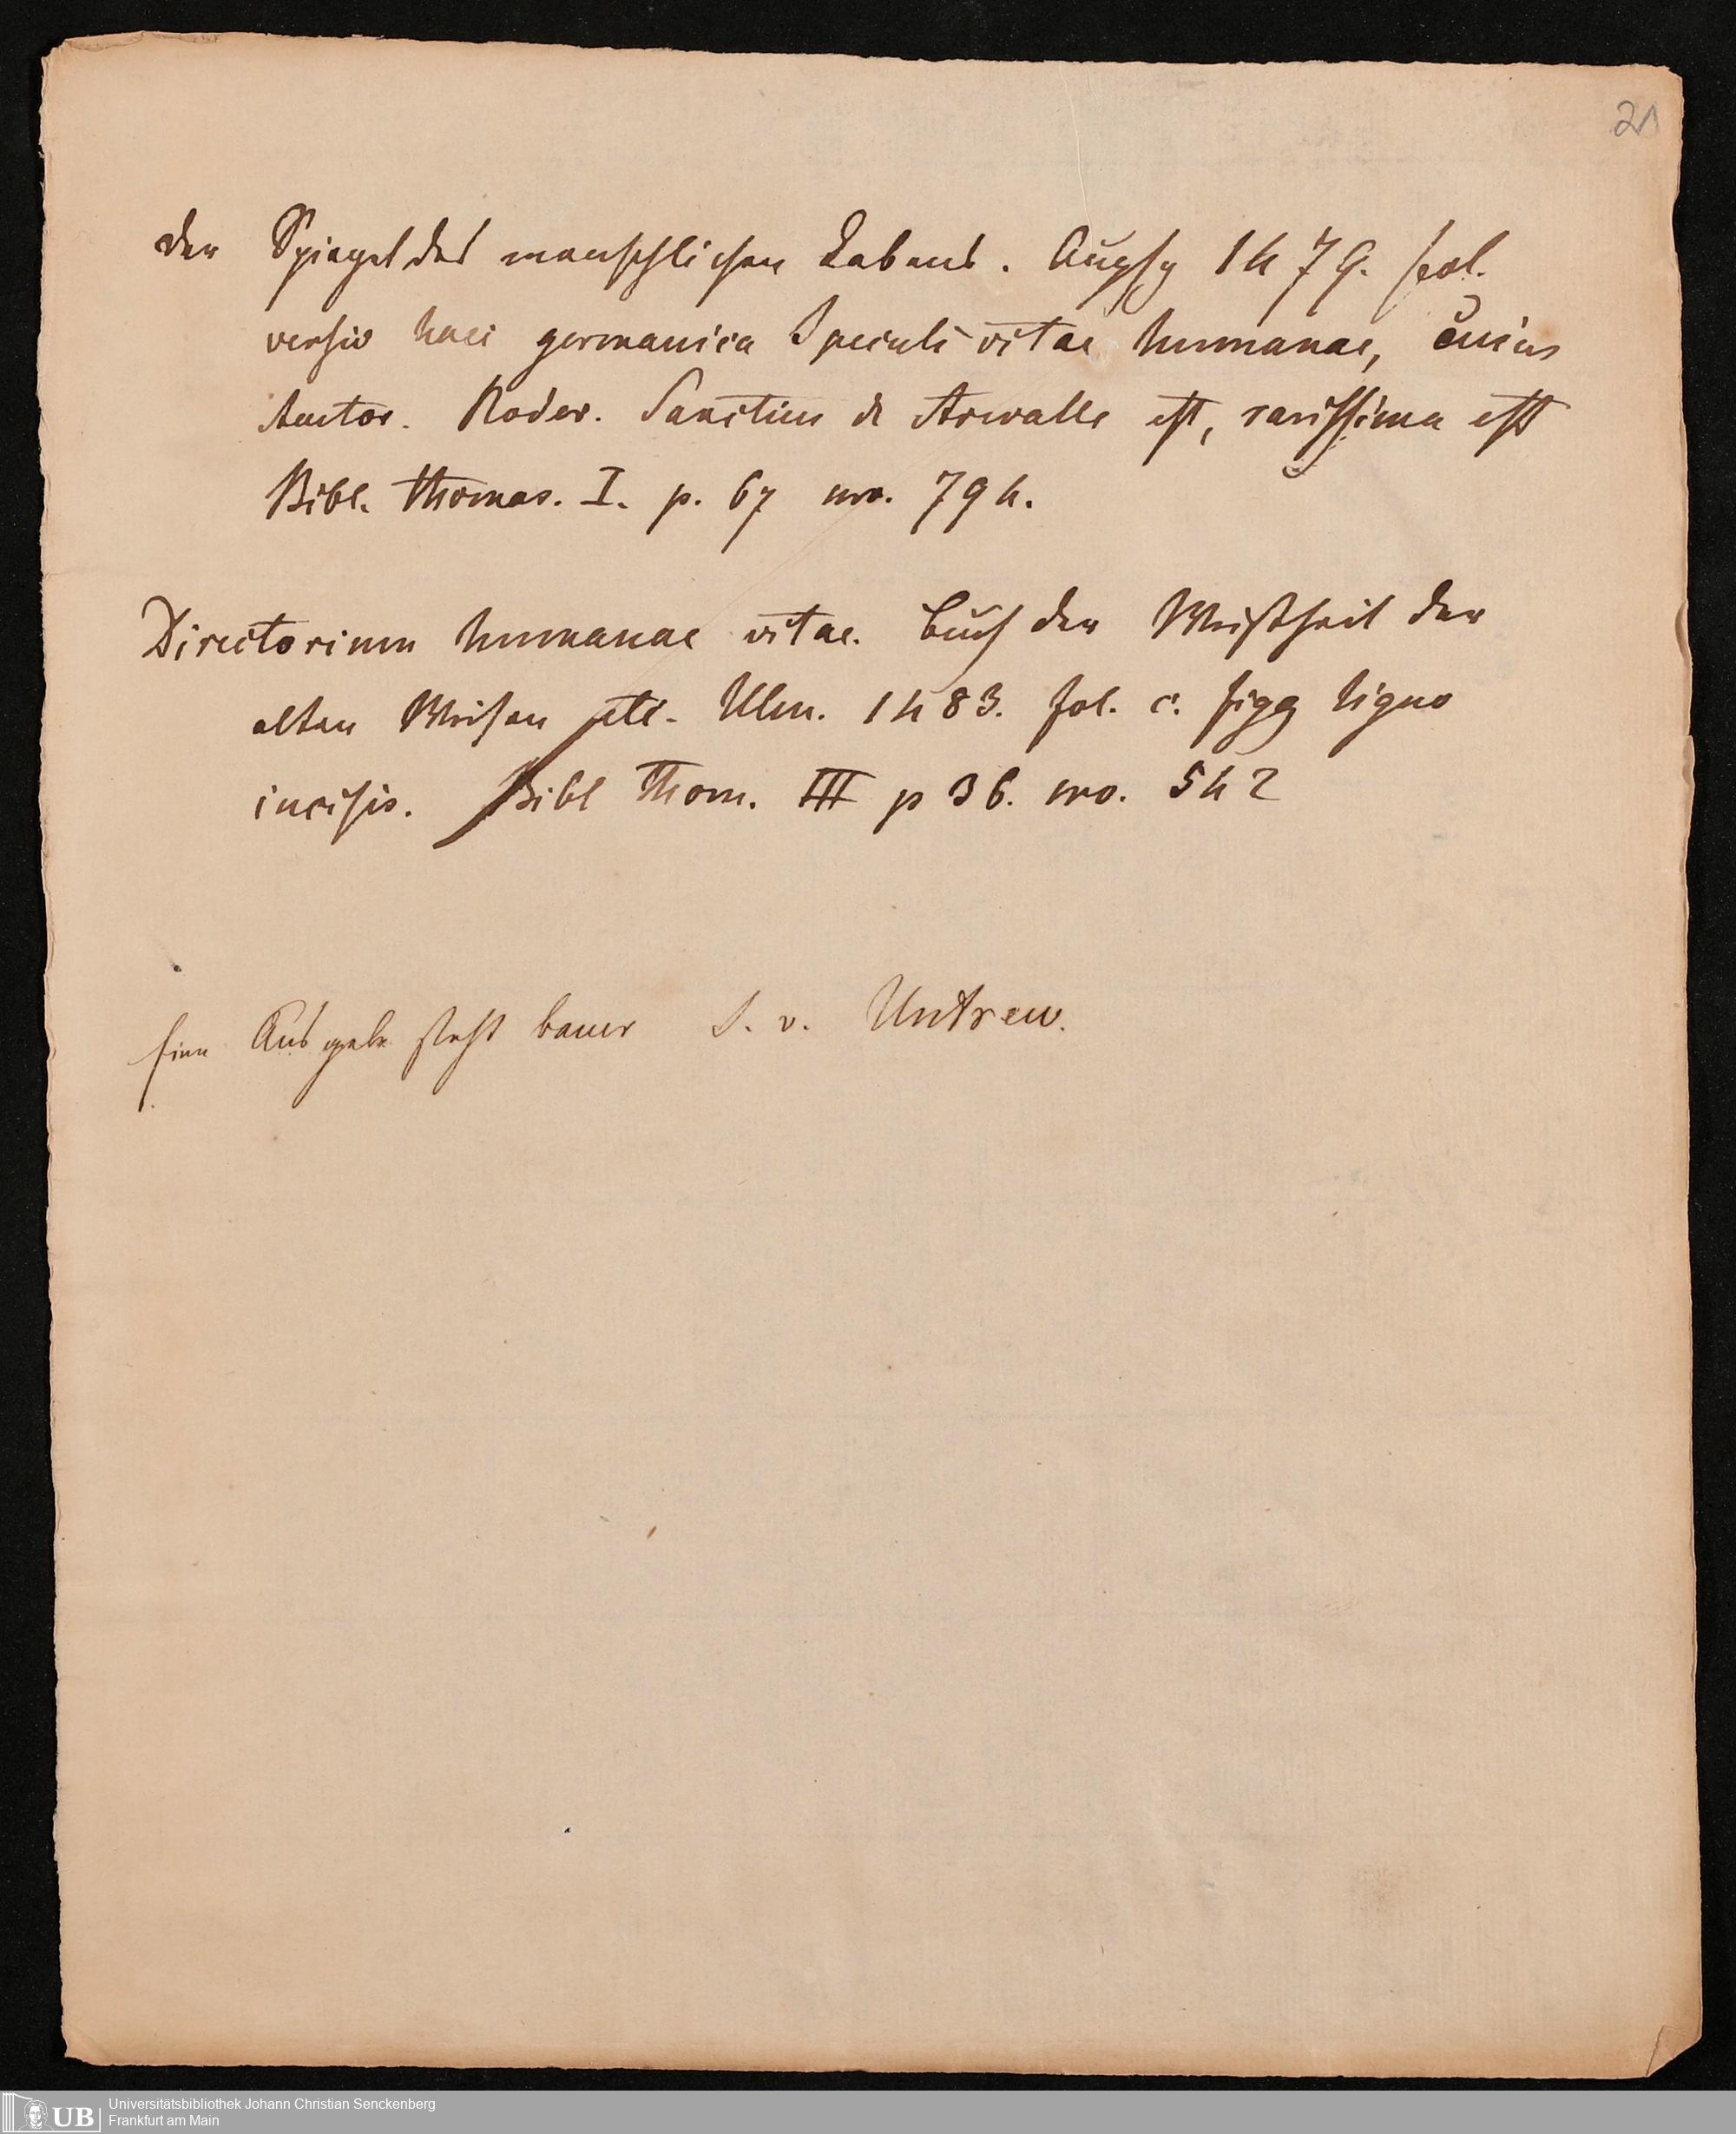 21
der Spiegel des menschlichen Lebens. Augsp 1479. fol.
versio haec germanica Speculi vitae humanae, cuius
Autor. Roder. Sanctius de Arevallo est, rarissima est
Bibl. Thomas. I. p. 67 nro. 794.
Directorium humanae vitae. Buch der Weißheit der
alten Weisen etc. Ulm. 1483. fol. c. figg ligno
incisis. Bibl Thom. III p 36. nro. 542
Eine Ausgabe steht bauer S. v. Untrew.
UB Universitätsbibliothek Johann Christian Senckenberg
Frankfurt am Main